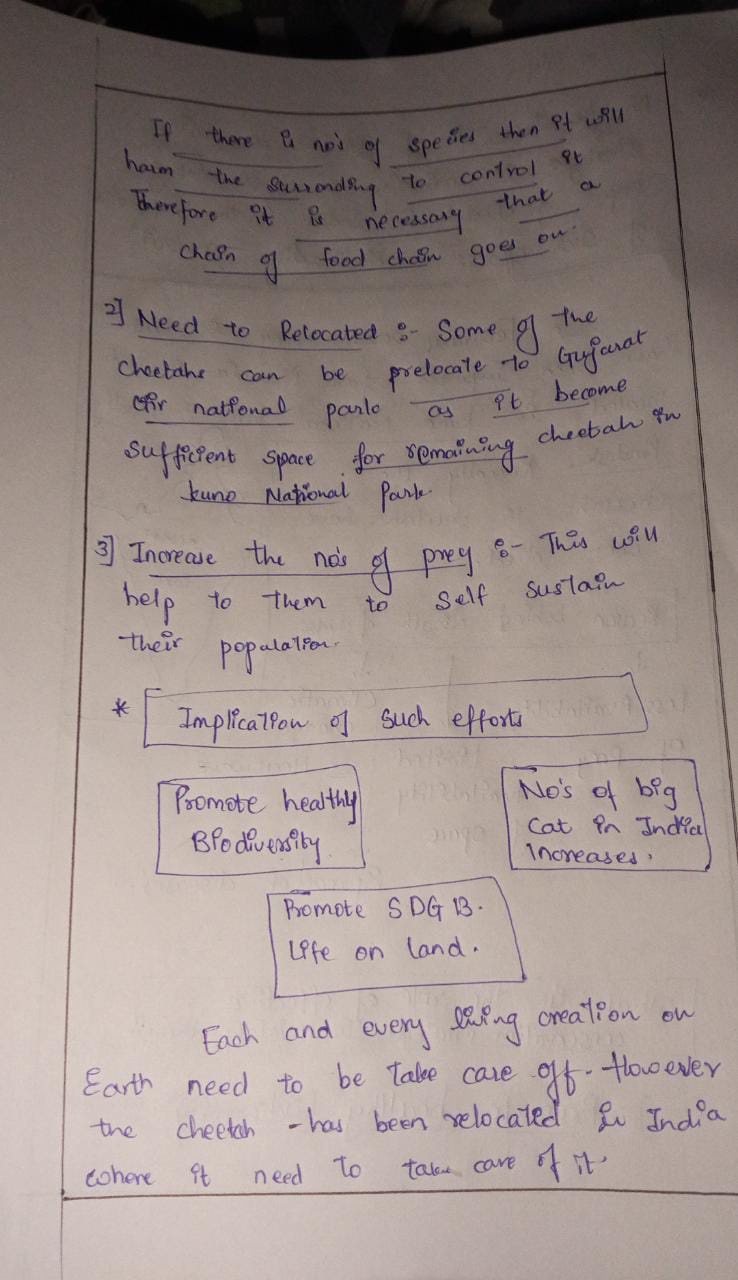 If there is no's of species then it will
harm the surronding to control it
Therefore it is necessary that a
chain of food chain goes on.
2] Need to Relocated :- Some of the
cheetahs can be prelocate to Gujarat
Gir national park as it become
sufficient space for remaining cheetah in
kuno National Park.
3] Increase the no's of prey :- This will
help to them to self sustain
their population.
* Implication of such efforts
Promote healthy
Biodiversity
No's of big
cat in India
increases.
Promote SDG 13.
Life on land.
Each and every living creation on
Earth need to be take care off. However
the cheetah has been relocated in India
where it need to take care of it.